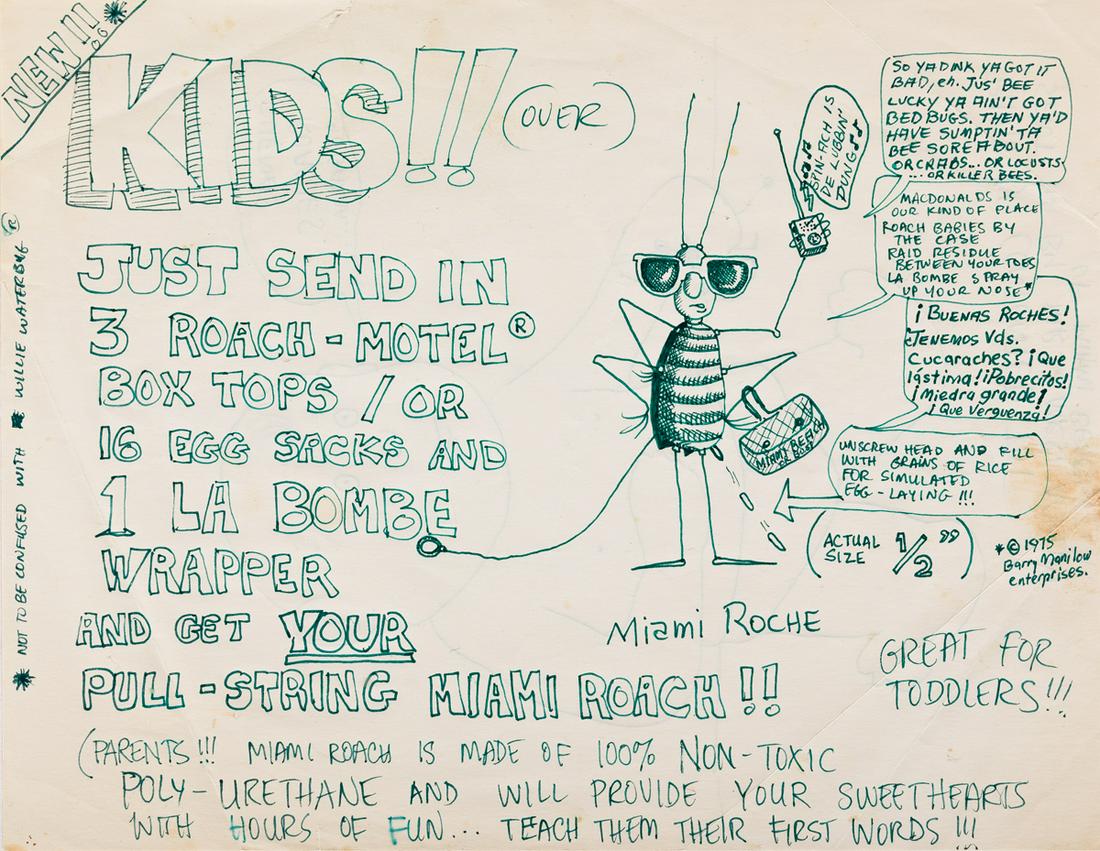 NEW!!! *
KIDS!!
(OVER)
JUST SEND IN
3 ROACH-MOTEL®
BOX TOPS / OR
16 EGG SACKS AND
1 LA BOMBE
WRAPPER
AND GET YOUR
PULL-STRING MIAMI ROACH!!
(PARENTS!!! MIAMI ROACH IS MADE OF 100% NON-TOXIC
POLY-URETHANE AND WILL PROVIDE YOUR SWEETHEARTS
WITH HOURS OF FUN... TEACH THEM THEIR FIRST WORDS!!!
* NOT TO BE CONFUSED WITH WILLIE WATERBUG ®
♪♪♪ SPIN-ACH IS
DE LUBBIN'
DUNG ♪♪
SO YA DINK YA GOT IT
BAD, eh. JUS' BEE
LUCKY YA AIN'T GOT
BED BUGS. THEN YA'D
HAVE SUMPTIN' TA
BEE SORE ABOUT.
OR CRABS... OR LOCUSTS
... OR KILLER BEES.
MACDONALDS IS
OUR KIND OF PLACE
ROACH BABIES BY
THE CASE
RAID RESIDUE
BETWEEN YOUR TOES
LA BOMBE SPRAY
UP YOUR NOSE*
¡BUENAS ROCHES!
¿TENEMOS Vds.
Cucaraches? ¡Que
lástima! ¡Pobrecitos!
¡Miedra grande!
¡Que Verguenza!
UNSCREW HEAD AND FILL
WITH GRAINS OF RICE
FOR SIMULATED
EGG-LAYING!!!
MIAMI BEACH
OR BUST
(ACTUAL
SIZE 1/2")
*© 1975
Barry Manilow
enterprises.
Miami ROCHE
GREAT FOR
TODDLERS!!!